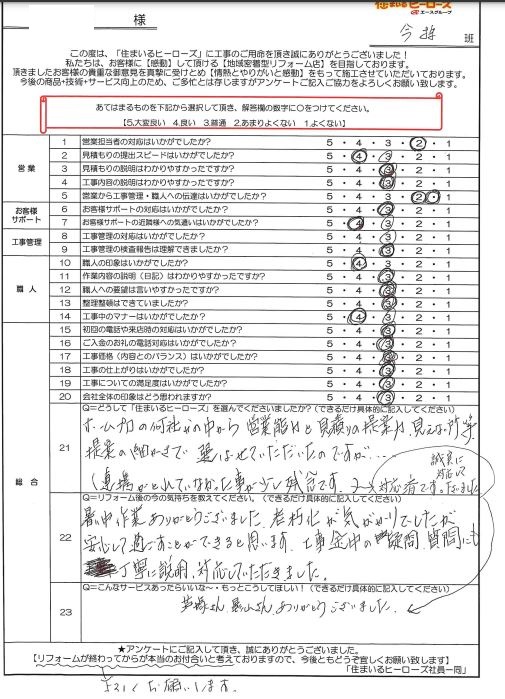 住まいるヒーローズ
エースグループ
様
班
この度は、「住まいるヒーローズ」に工事のご用命を頂き誠にありがとうございました！
私たちは、お客様に【感動】して頂ける【地域密着型リフォーム店】を目指しております。
頂きましたお客様の貴重な御意見を真摯に受けとめ【情熱とやりがいと感動】をもって施工させていただいております。
今後の商品+技術+サービス向上のため、ご多忙とは存じますがアンケートにご記入ご協力をよろしくお願い致します。
あてはまるものを下記から選択して頂き、解答欄の数字に○をつけてください。
【5.大変良い 4.良い 3.普通 2.あまりよくない 1.よくない】
営業
1 営業担当者の対応はいかがでしたか? 5・4・3・2・1
2 見積もりの提出スピードはいかがでしたか? 5・4・3・2・1
3 見積もりの説明はわかりやすかったですか? 5・4・3・2・1
4 工事内容の説明はわかりやすかったですか? 5・4・3・2・1
5 営業から工事管理・職人への伝達はいかがでしたか? 5・4・3・2・1
お客様サポート
6 お客様サポートの対応はいかがでしたか? 5・4・3・2・1
7 お客様サポートの近隣様への気遣いはいかがでしたか? 5・4・3・2・1
工事管理
8 工事管理の対応はいかがでしたか? 5・4・3・2・1
9 工事管理の検査報告は理解できましたか? 5・4・3・2・1
職人
10 職人の印象はいかがでしたか? 5・4・3・2・1
11 作業内容の説明（日記）はわかりやすかったですか? 5・4・3・2・1
12 職人への要望は言いやすかったですか? 5・4・3・2・1
13 整理整頓はできていましたか? 5・4・3・2・1
14 工事中のマナーはいかがでしたか? 5・4・3・2・1
総合
15 初回の電話や来店時の対応はいかがでしたか? 5・4・3・2・1
16 ご入金のお礼の電話対応はいかがでしたか? 5・4・3・2・1
17 工事価格（内容とのバランス）はいかがでしたか? 5・4・3・2・1
18 工事の仕上がりはいかがでしたか? 5・4・3・2・1
19 工事についての満足度はいかがでしたか? 5・4・3・2・1
20 会社全体の印象はどう思われますか? 5・4・3・2・1
21 Q=どうして「住まいるヒーローズ」を選んでくださいましたか?（できるだけ具体的に記入してください）
ホームプロの何社かの中から営業能力と見積りの提案力、見えない所等
提案の細かさで選ばせていただいたのですが…
（連携がとれていなかった事が少し残念です。
誠実に
対応して
22 Q=リフォーム後の今の気持ちを教えてください。（できるだけ具体的に記入してください）
暑い中、作業ありがとうございました。老朽化が気がかりでしたが
安心して過ごすことができると思います。工事金中の疑問、質問にも
丁寧に説明、対応していただきました。
23 Q=こんなサービスあったらいいな～もっとこうしてほしい！（できるだけ具体的に記入してください）
さん、さん、ありがとうございました。
★アンケートにご記入して頂き、誠にありがとうございました。
【リフォームが終わってからが本当のお付合いと考えておりますので、今後ともどうぞ宜しくお願い致します】
「住まいるヒーローズ社員一同」
よろしくお願いします。